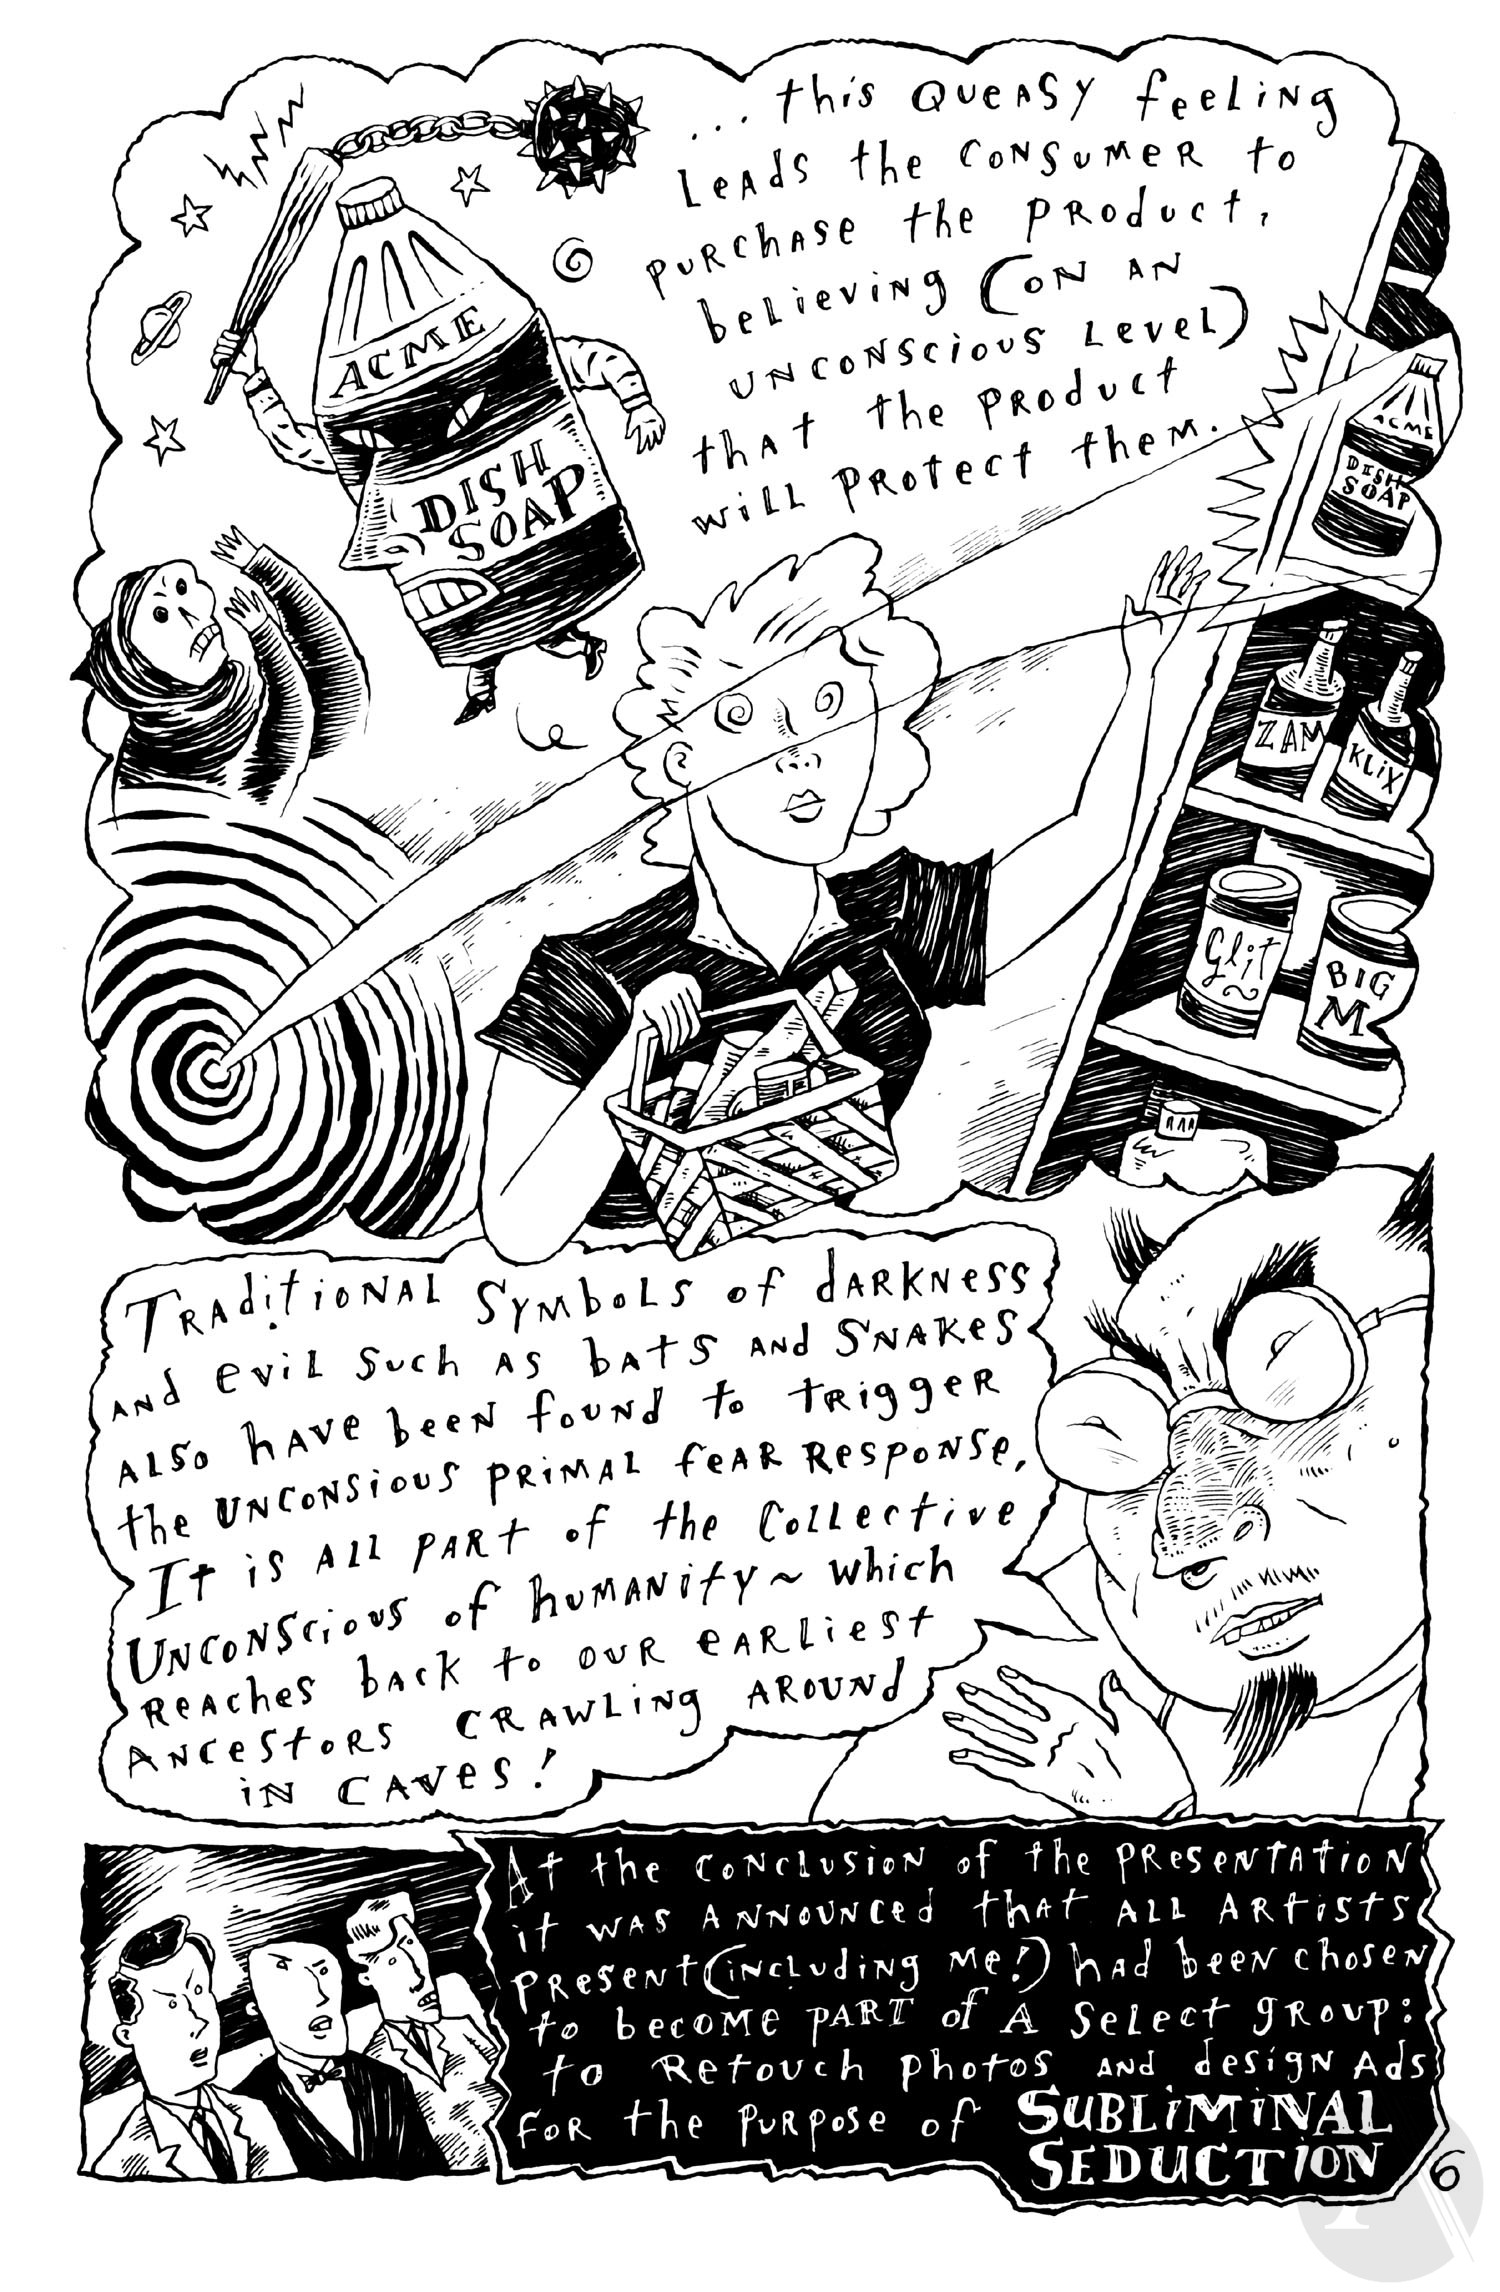 ...this queasy feeling
leads the consumer to
purchase the product,
believing (on an
unconscious level)
that the product
will protect them.
ACME
DISH
SOAP
ACME
DISH
SOAP
ZAM
KLIX
Glit
BIG
M
Traditional symbols of darkness
and evil such as bats and snakes
also have been found to trigger
the unconsious primal fear response,
It is all part of the collective
unconscious of humanity~which
reaches back to our earliest
ancestors crawling around
in caves!
At the conclusion of the presentation
it was announced that all artists
present (including me!) had been chosen
to become part of a select group:
to retouch photos and design ads
for the purpose of SUBLIMINAL
SEDUCTION
6